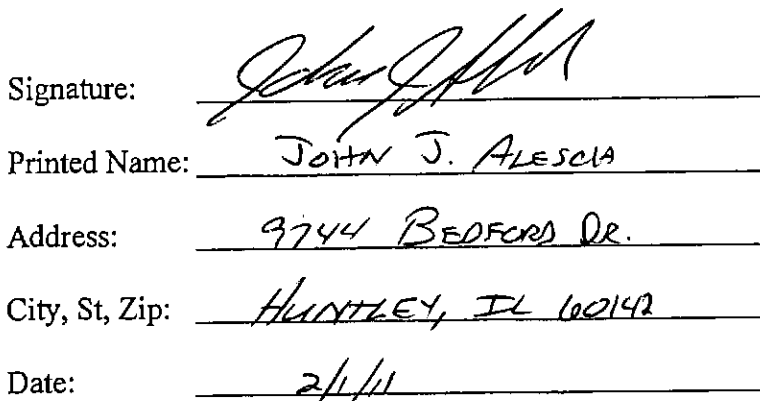 Signature: John J Al
Printed Name: JOHN J. ALESCIA
Address: 9744 BEDFORD DR.
City, St, Zip: HUNTLEY, IL 60142
Date: 2/1/11